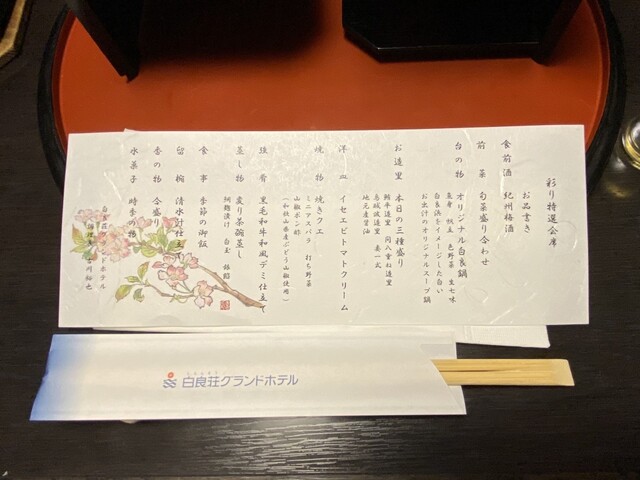 彩り特選会席
お品書き
食前酒　紀州梅酒
前　菜　旬菜盛り合わせ
台の物　オリジナル白良鍋
白良浜をイメージした白い
お出汁のオリジナルスープ鍋
お造里　本日の三種盛り
地元産醤油
洋　皿　イセエビトマトクリーム
焼　物　焼きクエ
ミニアスパラ　打ち野菜
山椒ポン酢
(和歌山県産ぶどう山椒使用)
強　肴　黒毛和牛和風デミ仕立て
蒸し物　変り茶碗蒸し
銀餡
食　事　季節の御飯
留　椀　清水汁仕立
香の物　合盛り
水菓子　時季の物
白良荘グランドホテル
白良荘グランドホテル